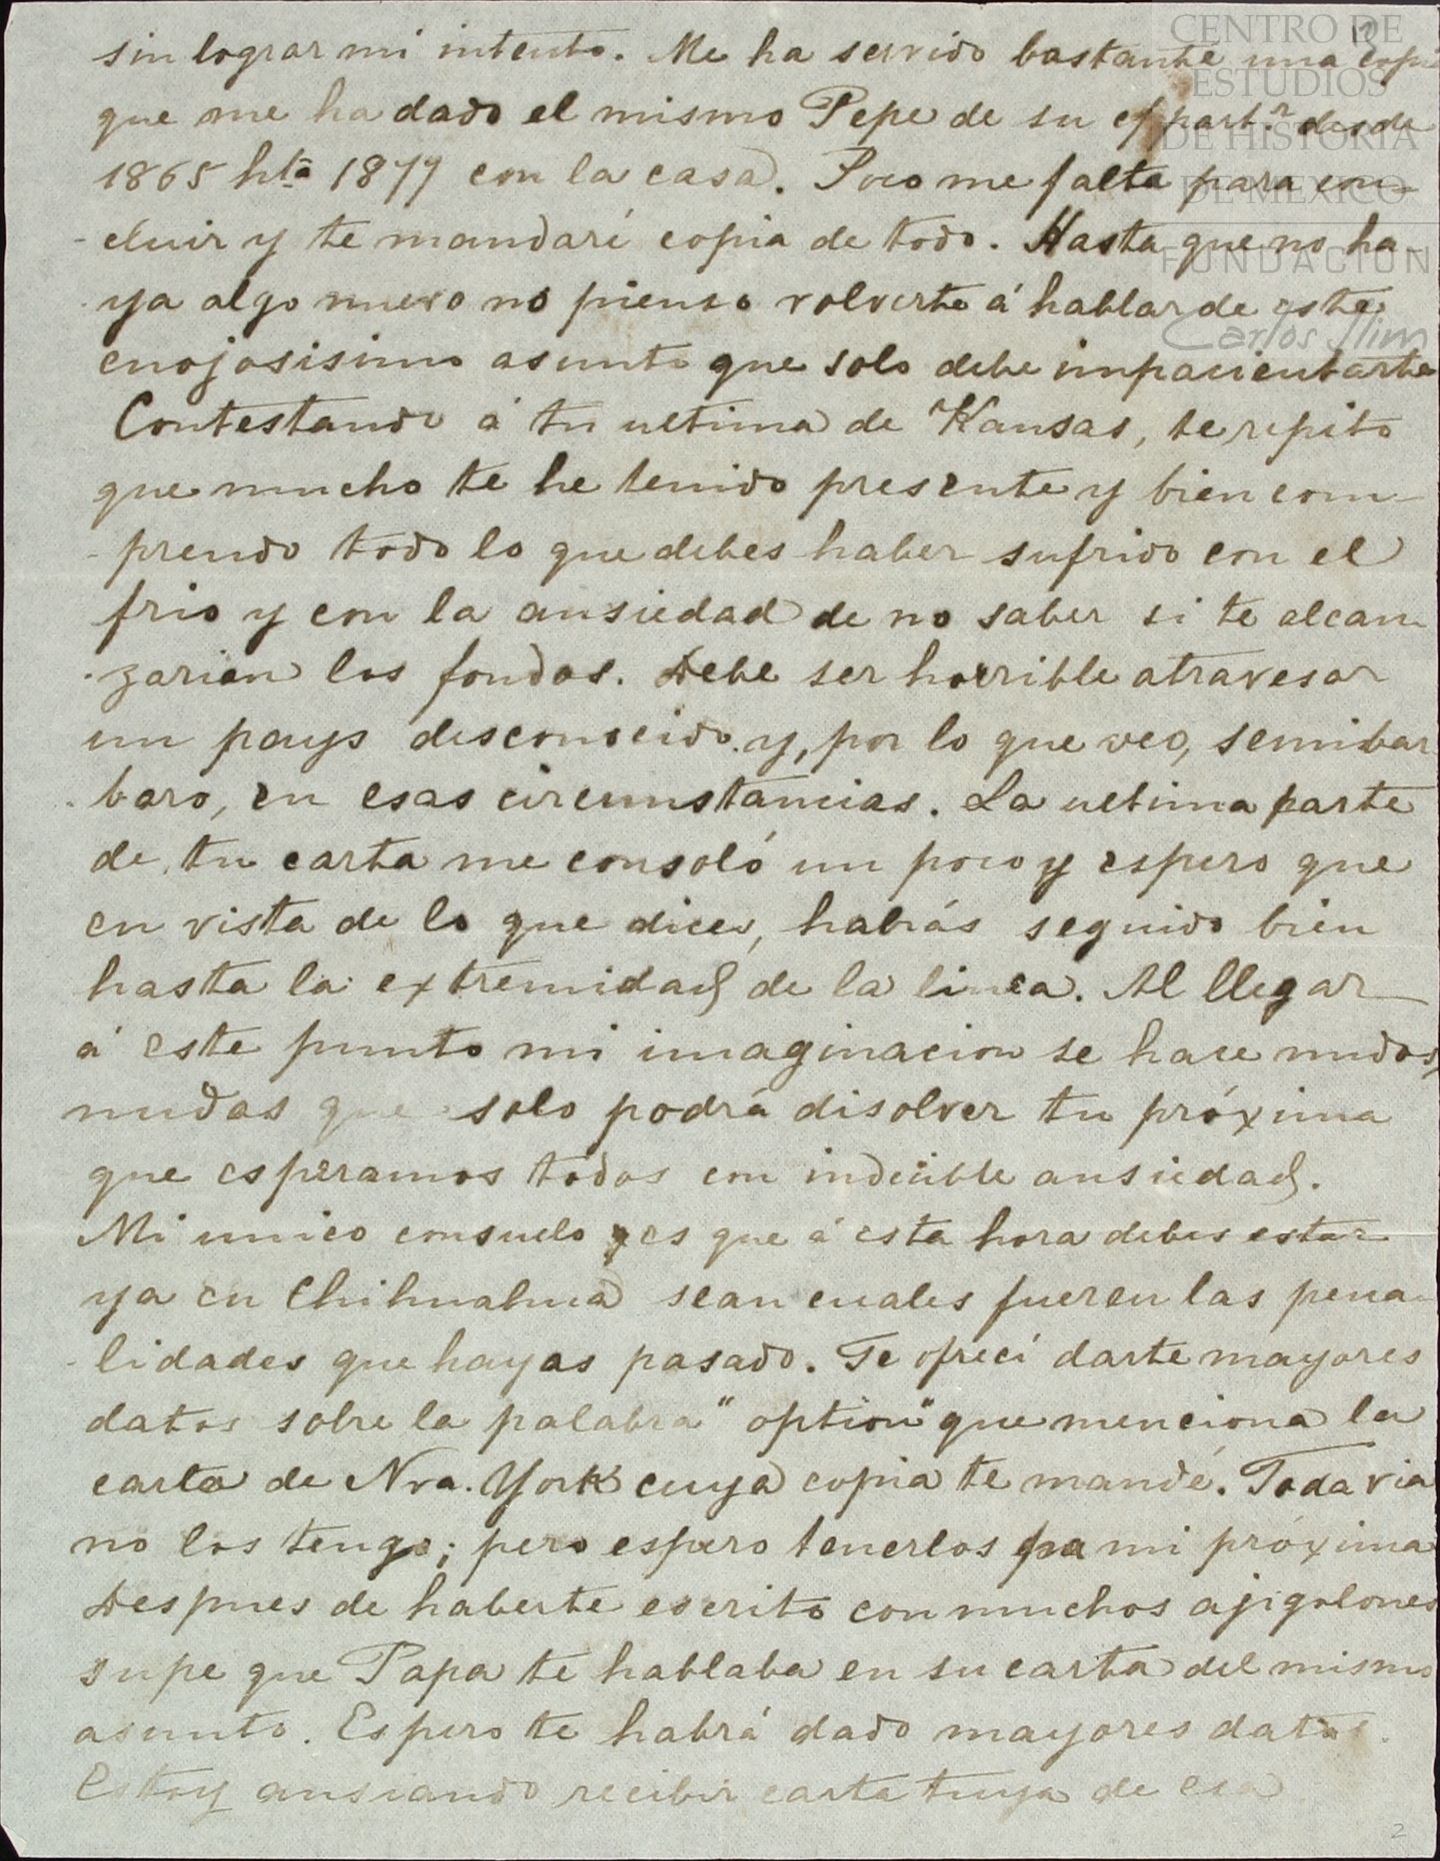 CENTRO DE
ESTUDIOS
DE HISTORIA
DE MEXICO
FUNDACION
Carlos Slim
sin lograr mi intento. Me ha servido bastante una copia
que me ha dado el mismo Pepe de su part.r desde
1865 hta 1879 con la casa. Poco me falta para con-
-cluir y te mandaré copia de todo. Hasta que no ha-
-ya algo nuevo no pienso volverte á hablar de este
enojosisimo asunto que solo debe impacientarte
Contestando á tu ultima de Kansas, te repito
que mucho te he tenido presente y bien com-
-prendo todo lo que debes haber sufrido con el
frio y con la ansiedad de no saber si te alcan
-zarian los fondos. Debe ser horrible atravesar
un pays desconocido y, por lo que veo, semibar
-baro, en esas circunstancias. La ultima parte
de tu carta me consoló un poco y espero que
en vista de lo que dices, habrás seguido bien
hasta la extremidad de la linea. Al llegar
á este punto mi imaginacion se hace nudos,
nudos que solo podrá disolver tu próxima
que esperamos todos con indecible ansiedad.
Mi unico consuelo es que á esta hora debes estar
ya en Chihuahua sean cuales fueren las pena-
-lidades que hayas pasado. Te ofrecí darte mayores
datos sobre la palabra "option" que menciona la
carta de Nva. York cuya copia te mandé. Todavia
no los tengo; pero espero tenerlos pa mi próxima
Despues de haberte escrito con muchos ajigolones
supe que Papa te hablaba en su carta del mismo
asunto. Espero te habrá dado mayores datos.
Estoy ansiando recibir carta tuya de esa
2